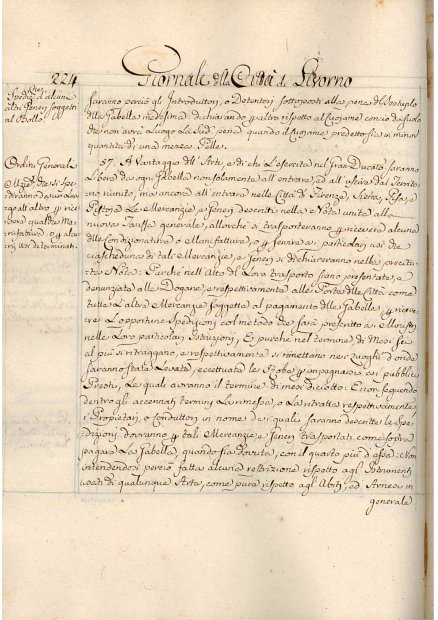 224 Giornale della Città di Livorno
Spediz.ne d'alcuni
altri Generi soggetti
al Bollo.
saranno perciò gl'Introduttori, o Detentori sottoposti alla pena del sestuplo
della Gabella medesima, dichiarando p altro rispetto al Cuojame conciò da suolo
che non avrà luogo la sud.a pena quando il Cuojame predetto sia in minor
quantità di una mezza Pelle.
Ordini Generali
Merzie che si spe
diranno da un luo
go all'altro p rice
vere qualche Ma
nifattura, o p alcu
ni usi determinati.
57. A Vantaggio dell'Arte, e di chi l'esercita nel Gran Ducato saranno
libere da ogni Gabella non solamente all'entrare, ed all'uscire dal Territo
rio riunito, ma ancora all'entrare nelle Città di Firenze, Siena, Pisa, e
Pistoja le Mercanzie, e Generi descritti nella Nota unita alla
nuova Tariffa generale, allorchè si trasporteranno p ricevere alcune
delle Condizionatura, o Manifatture, o p servire a' particolari usi che
a ciascheduno di tali Mercanzie, e Generi si dichiareranno nella preci
ta Nota: Purchè nell'Atto del loro trasporto siano presentate, e
denunziate alle Dogane, e respettivamente alle Porte delle Città come
tutte l'altre Mercanzie soggette al pagamento delle Gabelle p riceve
re l'opportune spedizioni col metodo che sarà prescritto a' Ministri
nelle loro particolari Istruzioni, E purchè nel termine di Mesi sei
al più si ritraggano, e respettivamente si rimettano ne' Luoghi d'onde
saranno state levate, eccettuate le Robe p impegnarsi a' pubblici
Presti, le quali avranno il termine di mesi diciotto: E non seguendo
dentro gli accennati termini la rimessa, o la ritratta respettivamente
i Proprietari, o Conduttori in nome de' quali saranno descritte le spe
dizioni dovranno p tali Mercanzie, e Generi trasportati come sopra
pagare la Gabella, quando sia dovuta, con il quarto più d'essa: Non
intendendosi perciò fatta alcuna restrizione rispetto agl'Istrumenti
usati di qualunque Arte, come pure rispetto agl'Abiti, ed Arnesi in
generale